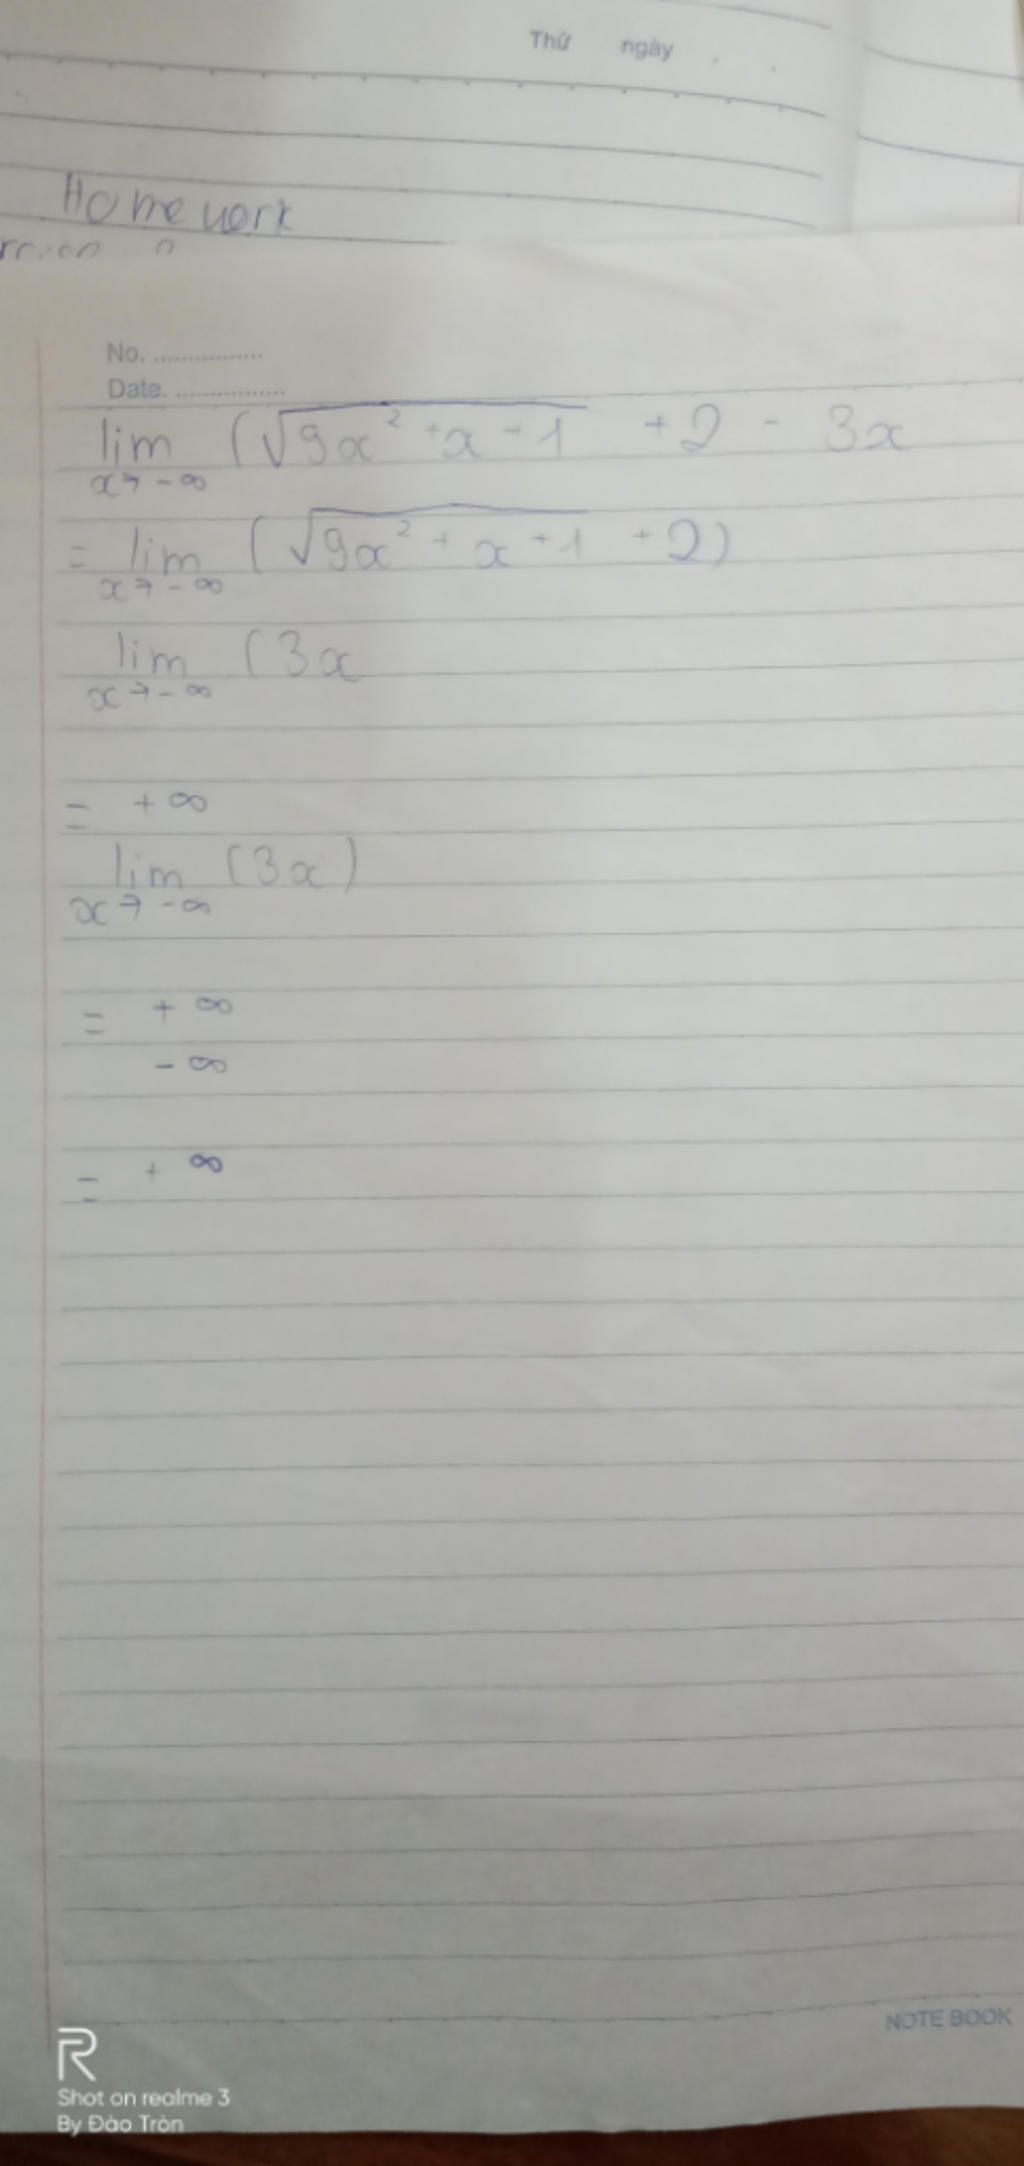 Thứ ngày . .
Home work
No. ................
Date. ................
lim (√9x² + x + 1 + 2 - 3x
x→ -∞
= lim (√9x² + x + 1 + 2)
x→ -∞
lim (3x
x→ -∞
= +∞
lim (3x)
x→ -∞
= + ∞
- ∞
= + ∞
NOTE BOOK
R
Shot on realme 3
By Đào Tròn